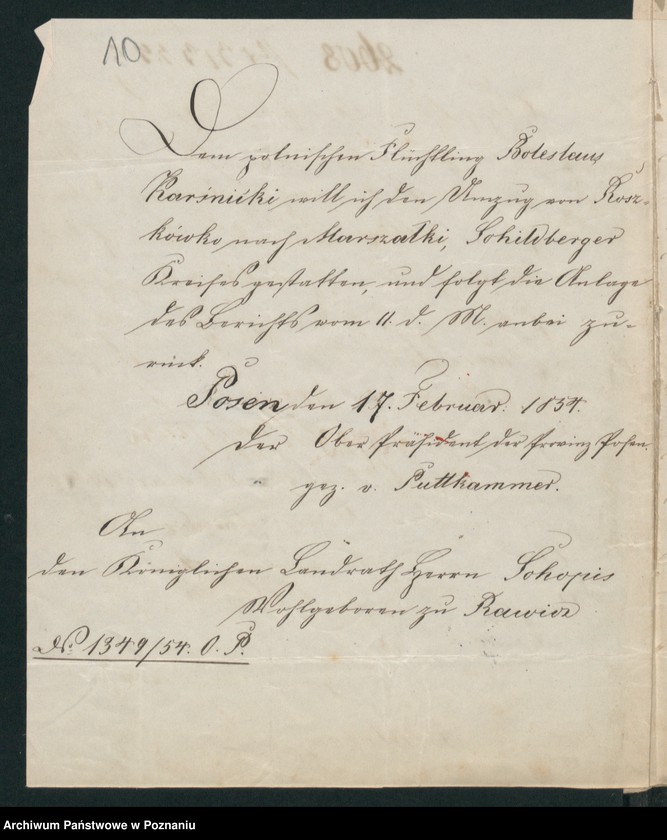 10
Dem polnischen Flüchtling Boleslaus
Karśnicki will ich den Umzug von Rosz-
kówko nach Marszałki, Schildberger
Kreises gestatten, und folgt die Anlage
des Berichts vom 11. d. M. anbei zu-
rück.
Posen den 17. Februar. 1854.
Der Ober Präsident der Provinz Posen.
gez. v. Puttkammer.
An
den Königlichen Landrath Herrn Schopis
Wohlgeboren zu Rawicz
No. 1349/54. O. P.
Archiwum Państwowe w Poznaniu